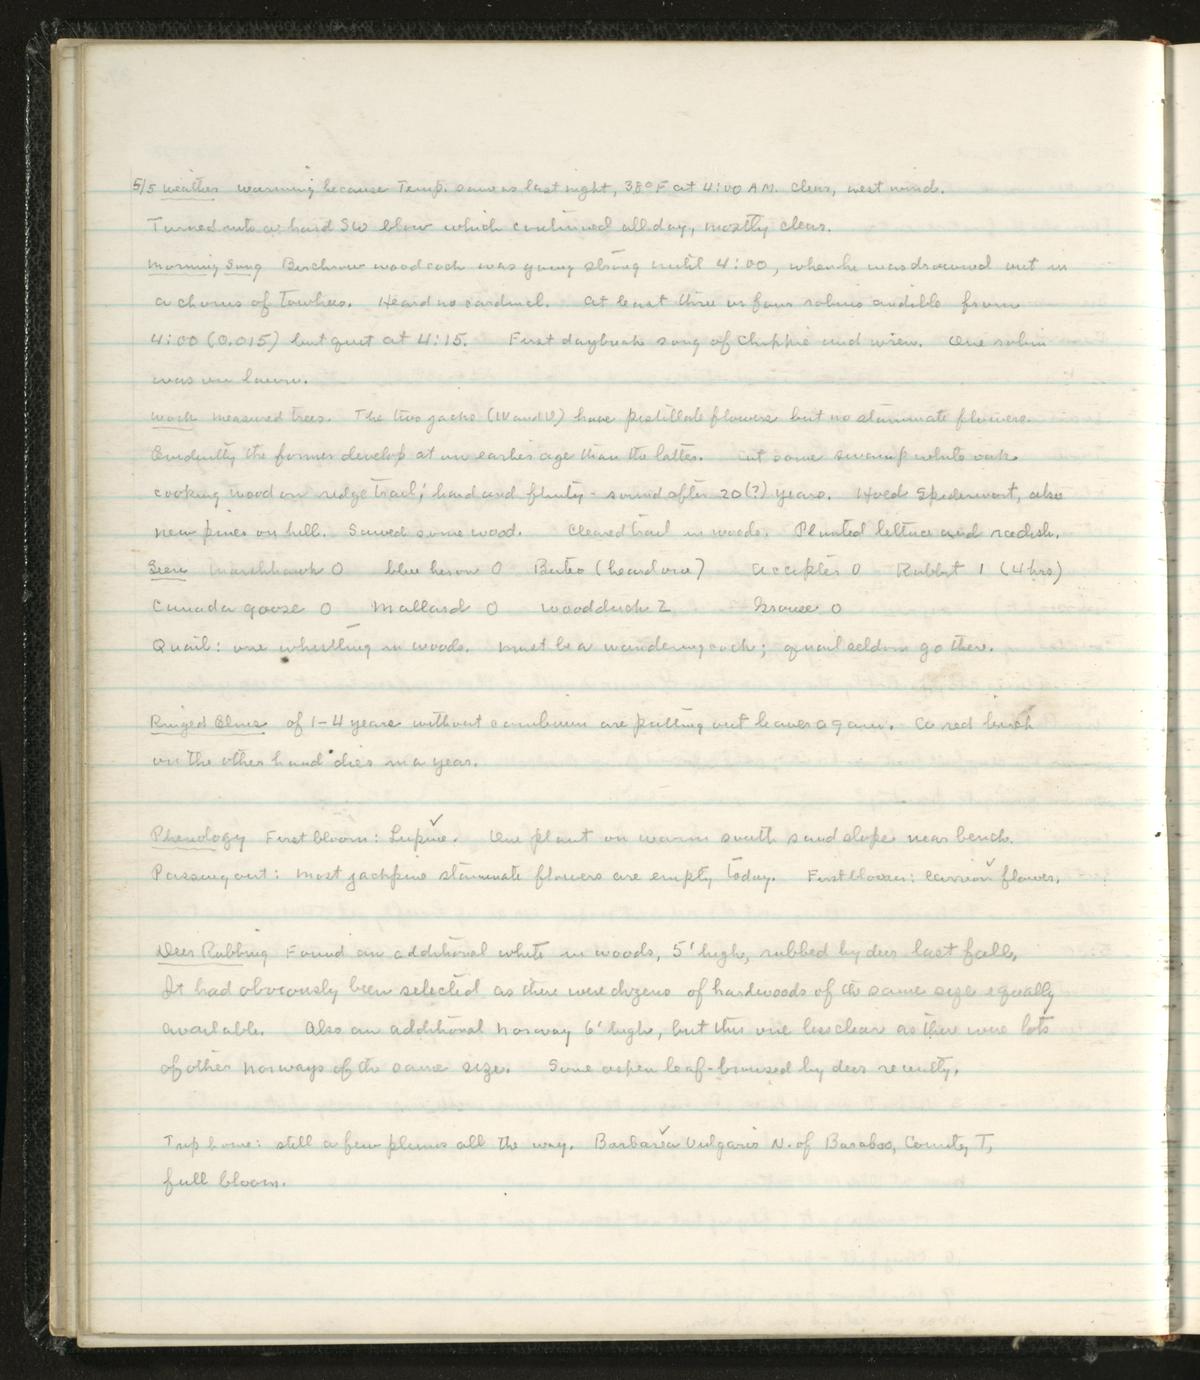 5/5 Weather warming because Temp. same as last night, 38°F at 4:00 A.M. Clear, west wind.
Turned into a hard SW blow which continued all day, mostly clear.
Morning Song Birchrow woodcock was going strong until 4:00, when he was drowned out in
a chorus of Towhees. Heard no cardinal. At least three or four robins audible from
4:00 (0.015) but quiet at 4:15. First daybreak song of Chippie and wren. One robin
was on lawn.
Work measured trees. The two jacks (IV and V) have pistillate flowers but no staminate flowers.
Evidently the former develop at an earlier age than the latter. Cut some swamp white oak
cooking wood on ridge trail; hard and flinty - sound after 20(?) years. Hoed Spiderwort, also
new pines on hill. Sawed some wood. Cleared trail in woods. Planted lettuce and radish.
Seen Marshhawk 0 blue heron 0 Buteo (heard one) Accipiter 0 Rabbit 1 (4 hrs)
Canada goose 0 Mallard 0 Woodduck 2 Grouse 0
Quail: one whistling in woods. Must be a wandering cock; quail seldom go there.
Ringed Elms of 1-4 years without cambium are putting out leaves again. Co red birch
on the other hand dies in a year.
Phenology First bloom: Lupine. One plant on warm south sand slope near bench.
Passing out: Most jackpine staminate flowers are empty today. First bloom: Carrion flower.
Deer Rubbing Found an additional white in woods, 5' high, rubbed by deer last fall.
It had obviously been selected as there were dozens of hardwoods of the same size equally
available. Also an additional Norway 6' high, but this one less clear as there were lots
of other Norways of the same size. Some aspen leaf-browsed by deer recently.
Trip home: still a few plums all the way. Barbarea Vulgaris N. of Baraboo, County T,
full bloom.